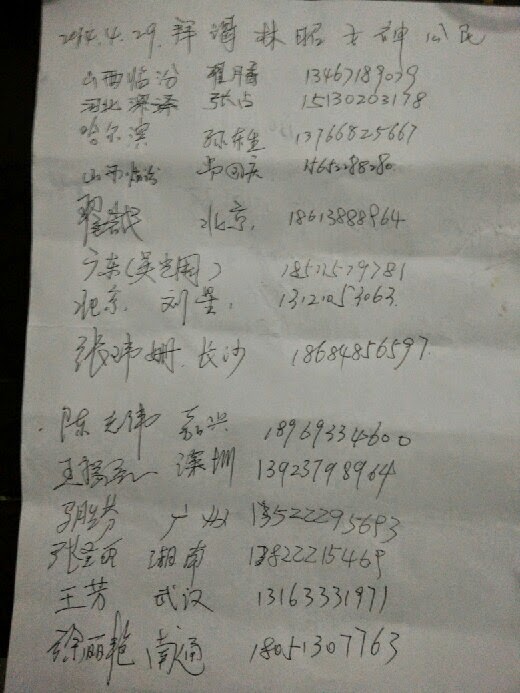 2014.4.29. 拜谒林昭女神公民
山西临汾 翟明磊 13467189029
河北深泽 张占 15130203178
哈尔滨 孙东生 13766825667
山西临汾 国庆
翟岩民 北京. 18613888964
广东(吴老用) 18515579781
北京. 刘星. 13121053063.
张玮姗. 长沙 18684856597.
陈 伟 嘉兴 18969334600
王 深圳 13923798964
胡 芬 广州 13522295693
张圣雨 湘南 13822215469
王芳 武汉 13163331971
徐丽艳 南通 18051307763